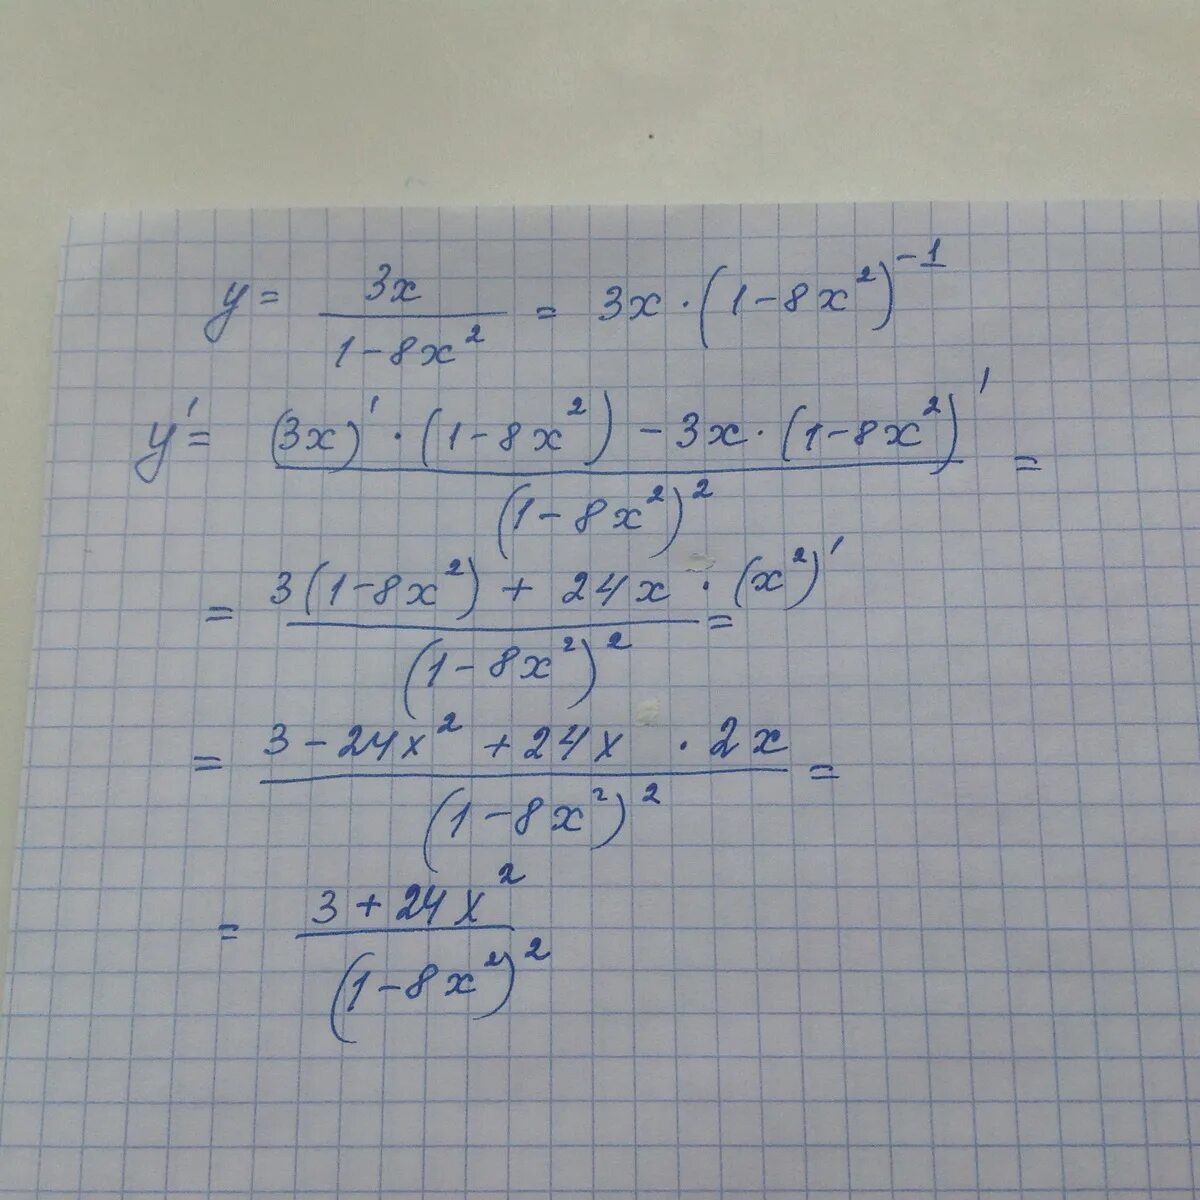 y = 3x / (1-8x²) = 3x·(1-8x²)⁻¹
y' = ((3x)'·(1-8x²) - 3x·(1-8x²)') / (1-8x²)² =
= (3(1-8x²) + 24x·(x²)') / (1-8x²)² =
= (3-24x² + 24x·2x) / (1-8x²)² =
= (3+24x²) / (1-8x²)²